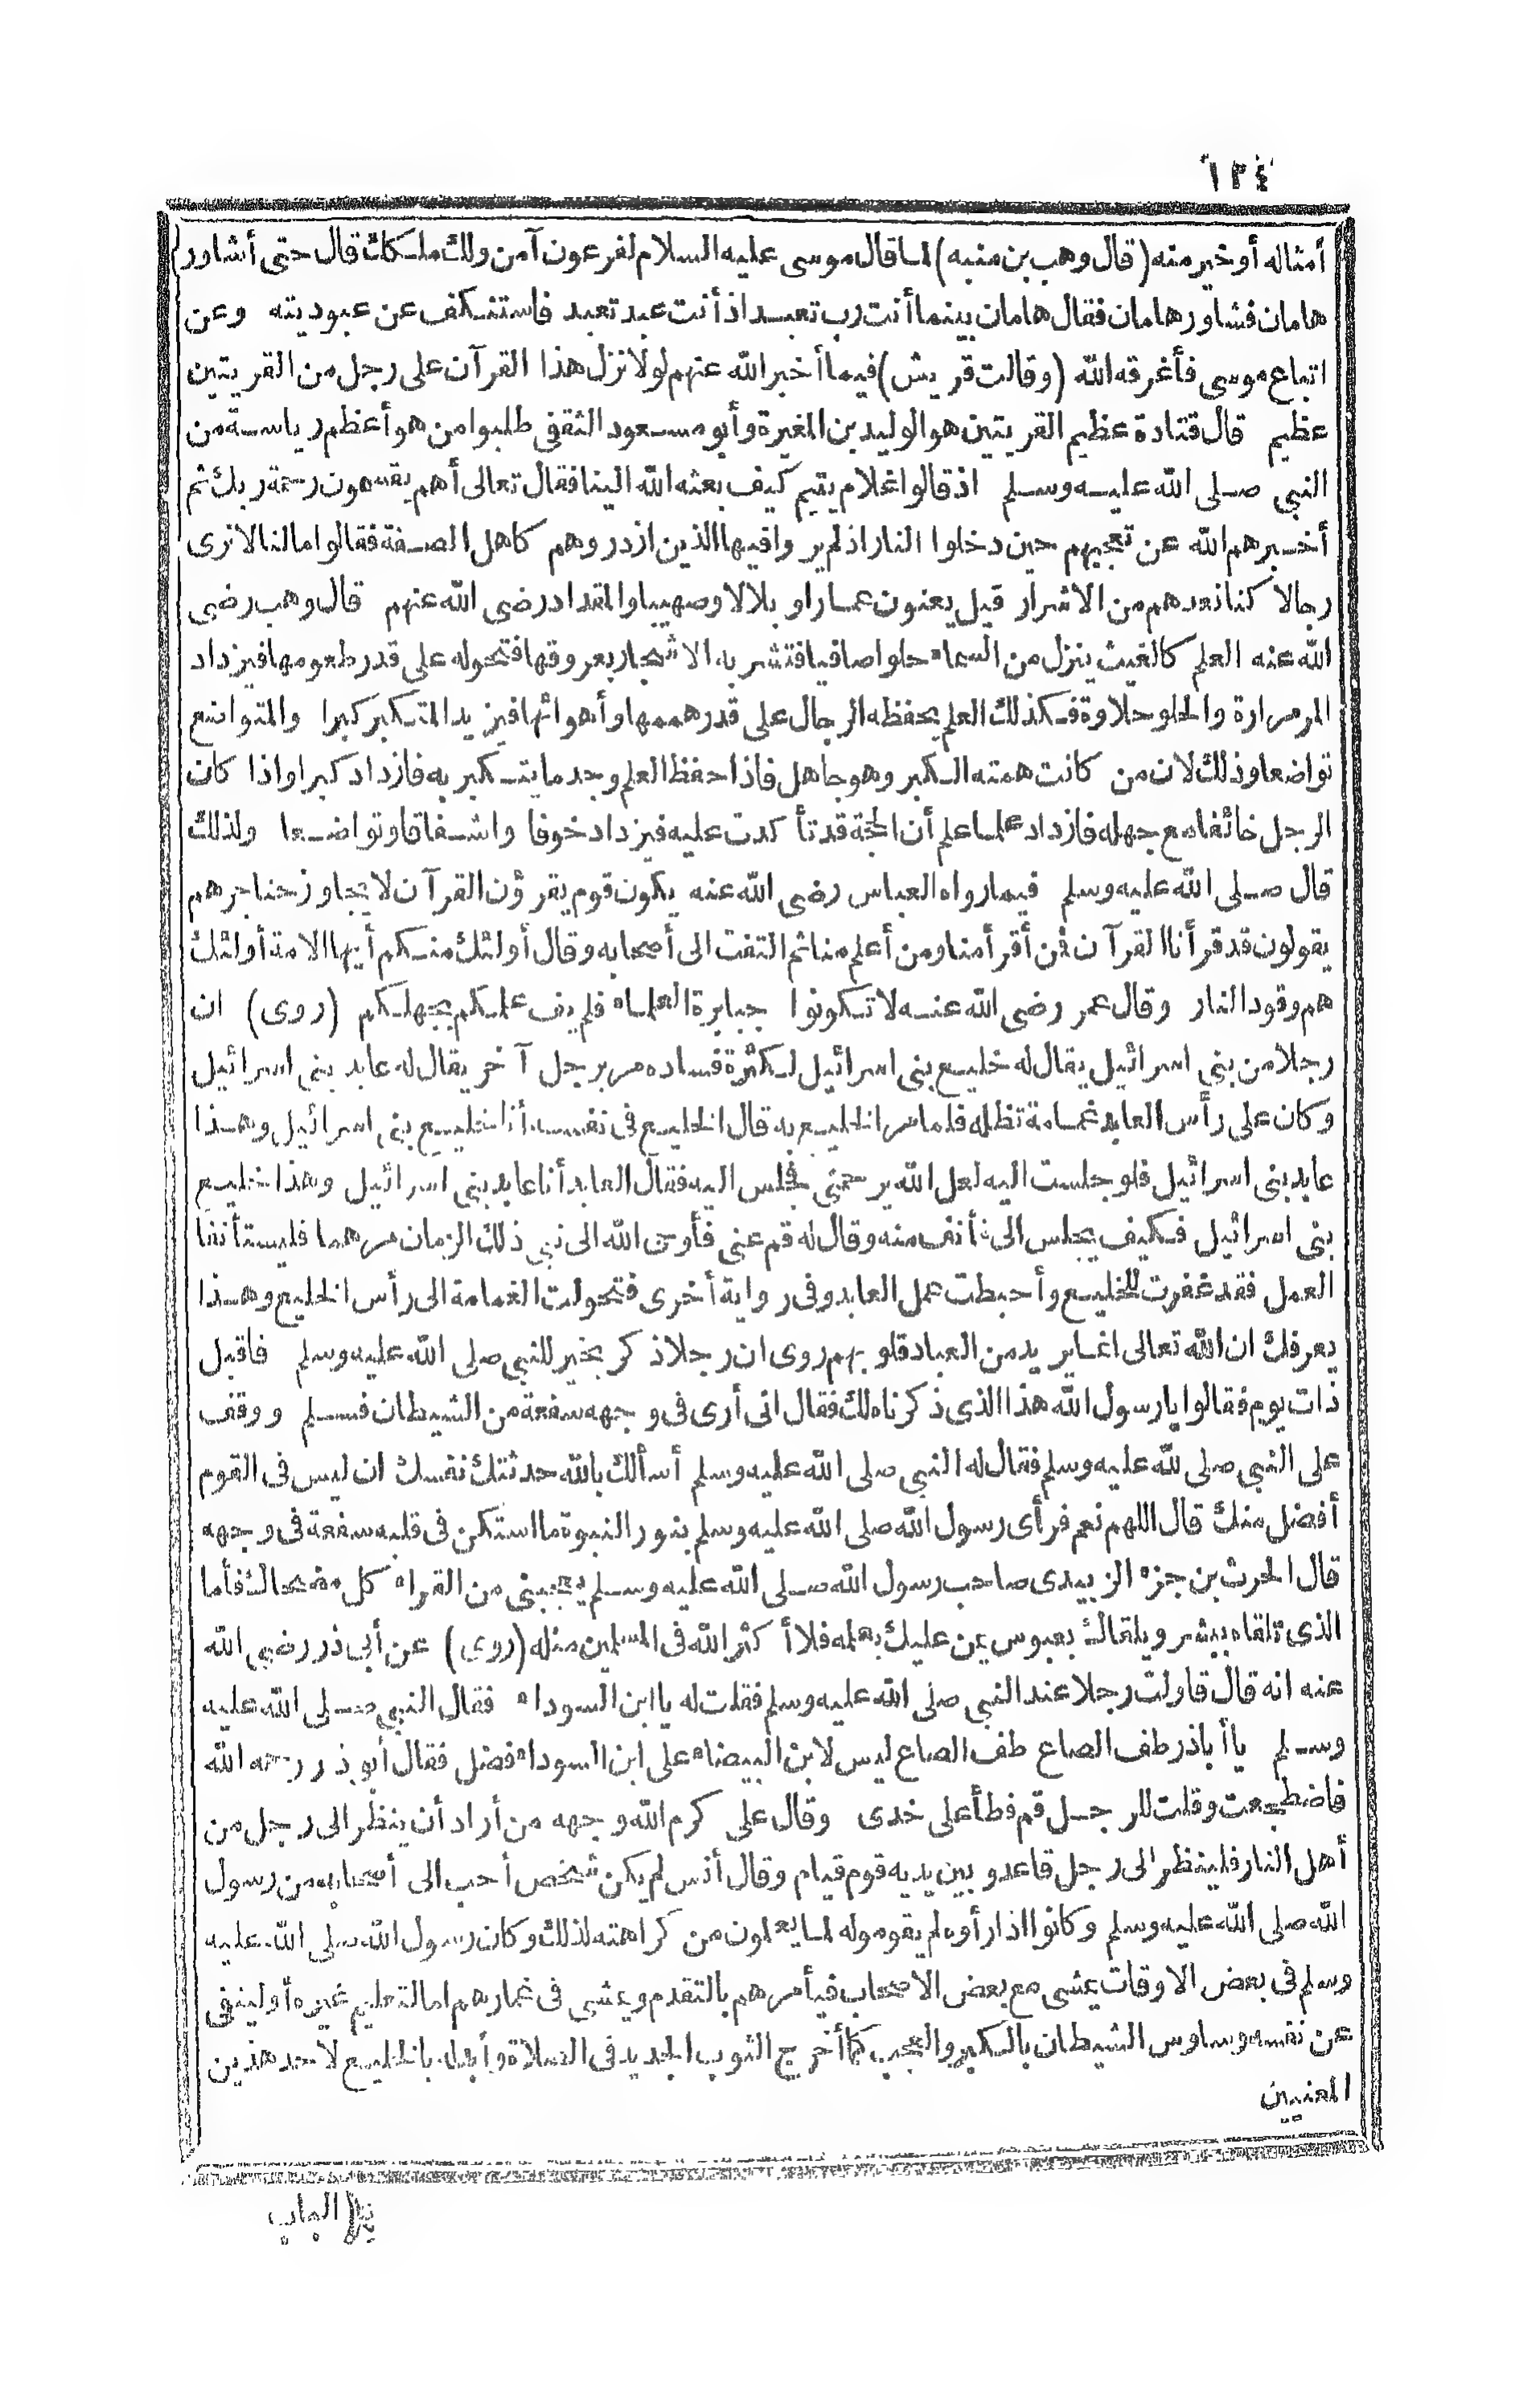 ١٣٤
أمثاله أو خير منه (قال وهب بن منبه) لما قال موسى عليه السلام لفرعون آمن ولك ملكك قال حتى أشاور
هامان فشاور هامان فقال هامان بينما أنت رب تعبد اذ أنت عبد تعبد فاستنكف عن عبوديته وعن
اتباع موسى فأغرقه الله (وقالت قريش) فيما أخبر الله عنهم لولا نزل هذا القرآن على رجل من القريتين
عظيم قال قتادة عظيم القريتين هو الوليد بن المغيرة وأبو مسعود الثقفى طلبوا من هو أعظم رياسة من
النبي صلى الله عليه وسلم اذ قالوا غلام يتيم كيف بعثه الله الينا فقال تعالى أهم يقسمون رحمة ربك ثم
أخبرهم الله عن تعجبهم حين دخلوا النار اذ لم يروا فيها الذين ازدروهم كاهل الصفة فقالوا مالنا لا نرى
رجالا كنا نعدهم من الاشرار قيل يعنون عمارا و بلالا وصهيبا والمقداد رضى الله عنهم قال وهب رضى
الله عنه العلم كالغيث ينزل من السماء حلوا صافيا فتشربه الاشجار بعروقها فتحوله على قدر طعومها فيزداد
المر مرارة والحلو حلاوة فكذلك العلم يحفظه الرجال على قدر هممها وأهوائها فيزيد المتكبر كبرا والمتواضع
تواضعا وذلك لان من كانت همته الكبر وهو جاهل فاذا حفظ العلم وجد ما يتكبر به فازداد كبرا واذا كان
الرجل خائفا مع جهله فازداد علما علم أن الحجة قد تأ كدت عليه فيزداد خوفا واشفاقا وتواضعا ولذلك
قال صلى الله عليه وسلم فيما رواه العباس رضى الله عنه يكون قوم يقرؤن القرآن لا يجاوز حناجرهم
يقولون قد قرأنا القرآن فمن أقرأ منا ومن أعلم منا ثم التفت الى أصحابه وقال أولئك منكم أيها الامة أولئك
هم وقود النار وقال عمر رضى الله عنه لا تكونوا جبابرة العلماء فلم يف علمكم بجهلكم (روى) ان
رجلا من بني اسرائيل يقال له خليع بنى اسرائيل لكثرة فساده مر برجل آخر يقال له عابد بني اسرائيل
وكان على رأس العابد غمامة تظله فلما مر الخليع به قال الخليع فى نفسه أنا خليع بنى اسرائيل وهذا
عابد بنى اسرائيل فلو جلست اليه لعل الله يرحمنى فجلس اليه فقال العابد أنا عابد بنى اسرائيل وهذا خليع
بنى اسرائيل فكيف يجلس الى فأنف منه وقال له قم عنى فأوحى الله الى نبي ذلك الزمان مرهما فليستأنفا
العمل فقد غفرت للخليع وأحبطت عمل العابد وفى رواية أخرى فتحولت الغمامة الى رأس الخليع وهذا
يعرفك ان الله تعالى انما يريد من العباد قلوبهم روى ان رجلا ذكر بخير للنبي صلى الله عليه وسلم فاقبل
ذات يوم فقالوا يا رسول الله هذا الذى ذكرناه لك فقال انى أرى فى وجهه سفعة من الشيطان فسلم ووقف
على النبي صلى لله عليه وسلم فقال له النبي صلى الله عليه وسلم أسألك بالله حدثتك نفسك ان ليس فى القوم
أفضل منك قال اللهم نعم فرأى رسول الله صلى الله عليه وسلم بنور النبوة ما استكن فى قلبه سفعة فى وجهه
قال الحرث بن جزء الزبيدى صاحب رسول الله صلى الله عليه وسلم يعجبنى من القراء كل مضحاك فأما
الذى تلقاه ببشر ويلقاك بعبوس يمن عليك بعلمه فلا أكثر الله فى المسلمين مثله (روى) عن أبى ذر رضى الله
عنه انه قال قاولت رجلا عند النبي صلى الله عليه وسلم فقلت له يا ابن السوداء فقال النبي صلى الله عليه
وسلم يا أباذر طف الصاع طف الصاع ليس لابن البيضاء على ابن السوداء فضل فقال أبو ذر رحمه الله
فاضطجعت وقلت للرجل قم فطأ على خدى وقال على كرم الله وجهه من أراد أن ينظر الى رجل من
أهل النار فلينظر الى رجل قاعد وبين يديه قوم قيام وقال أنس لم يكن شخص أحب الى أصحابه من رسول
الله صلى الله عليه وسلم وكانوا اذا رأوه لم يقوموا له لما يعلمون من كراهته لذلك وكان رسول الله صلى الله عليه
وسلم فى بعض الاوقات يمشى مع بعض الاصحاب فيأمرهم بالتقدم ويمشى فى غمارهم اما لتعليم غيره أولينفى
عن نفسه وساوس الشيطان بالكبر والعجب كما أخرج الثوب الجديد فى الصلاة وأبدله بالخليع لاحد هذين
المعنيين
الباب